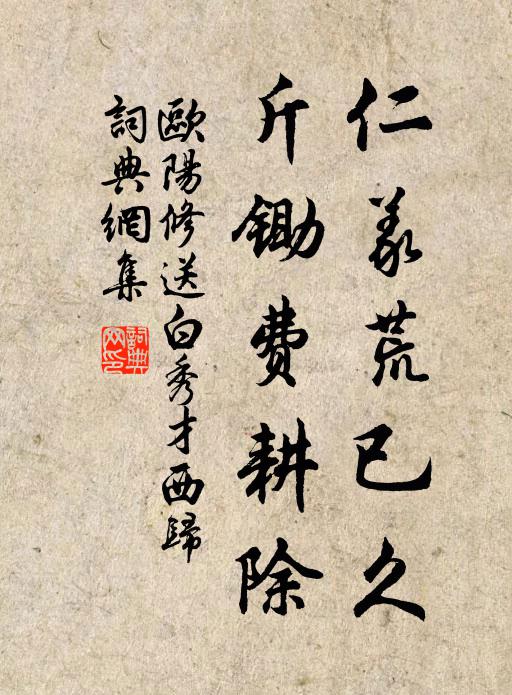 仁義荒已久
斤鋤費耕除
歐陽修送白秀才西歸
詞典網集
詞典網印